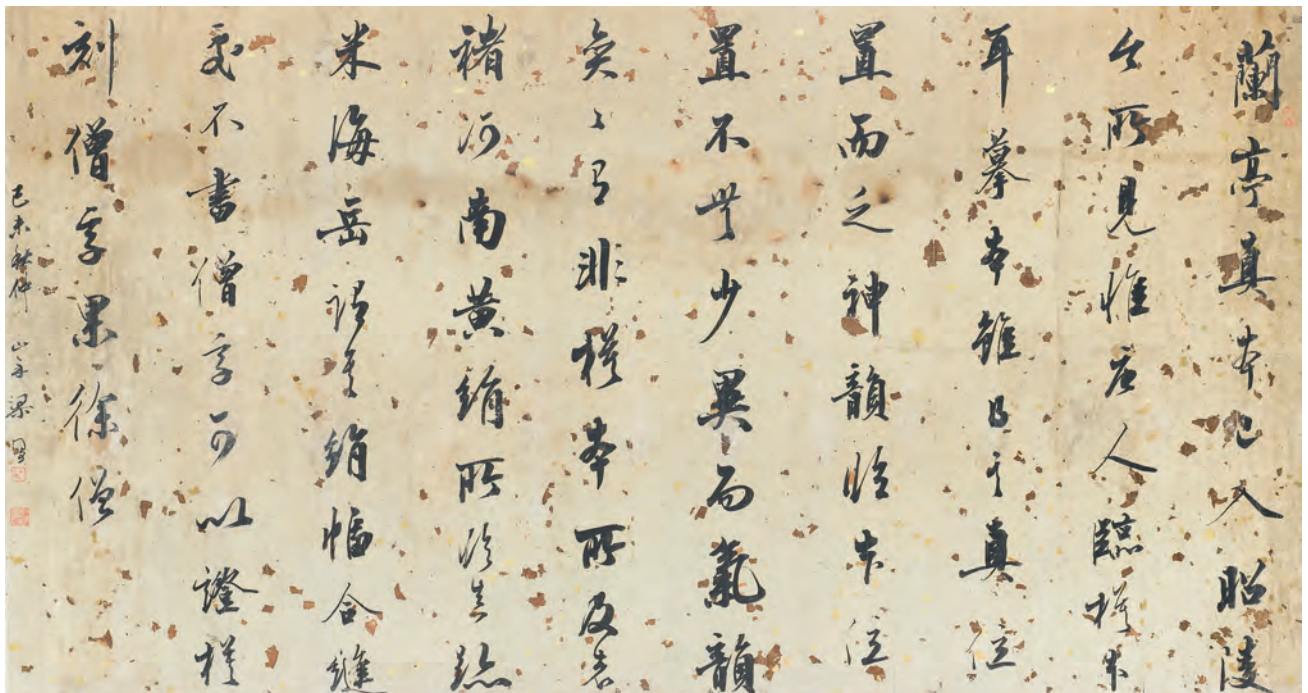 蘭亭真本已入昭陵
今所見惟唐人臨橅本
耳摹本雖得其真位
置而乏神韻臨本位
置不無少異而氣韻
奕々有非橅本所及者
褚河南黃絹所臨真跡
米海岳謂其絹幅合縫
處不書僧字可以證橅
刻僧字果徐僧
己未秋仲 山舟梁同書